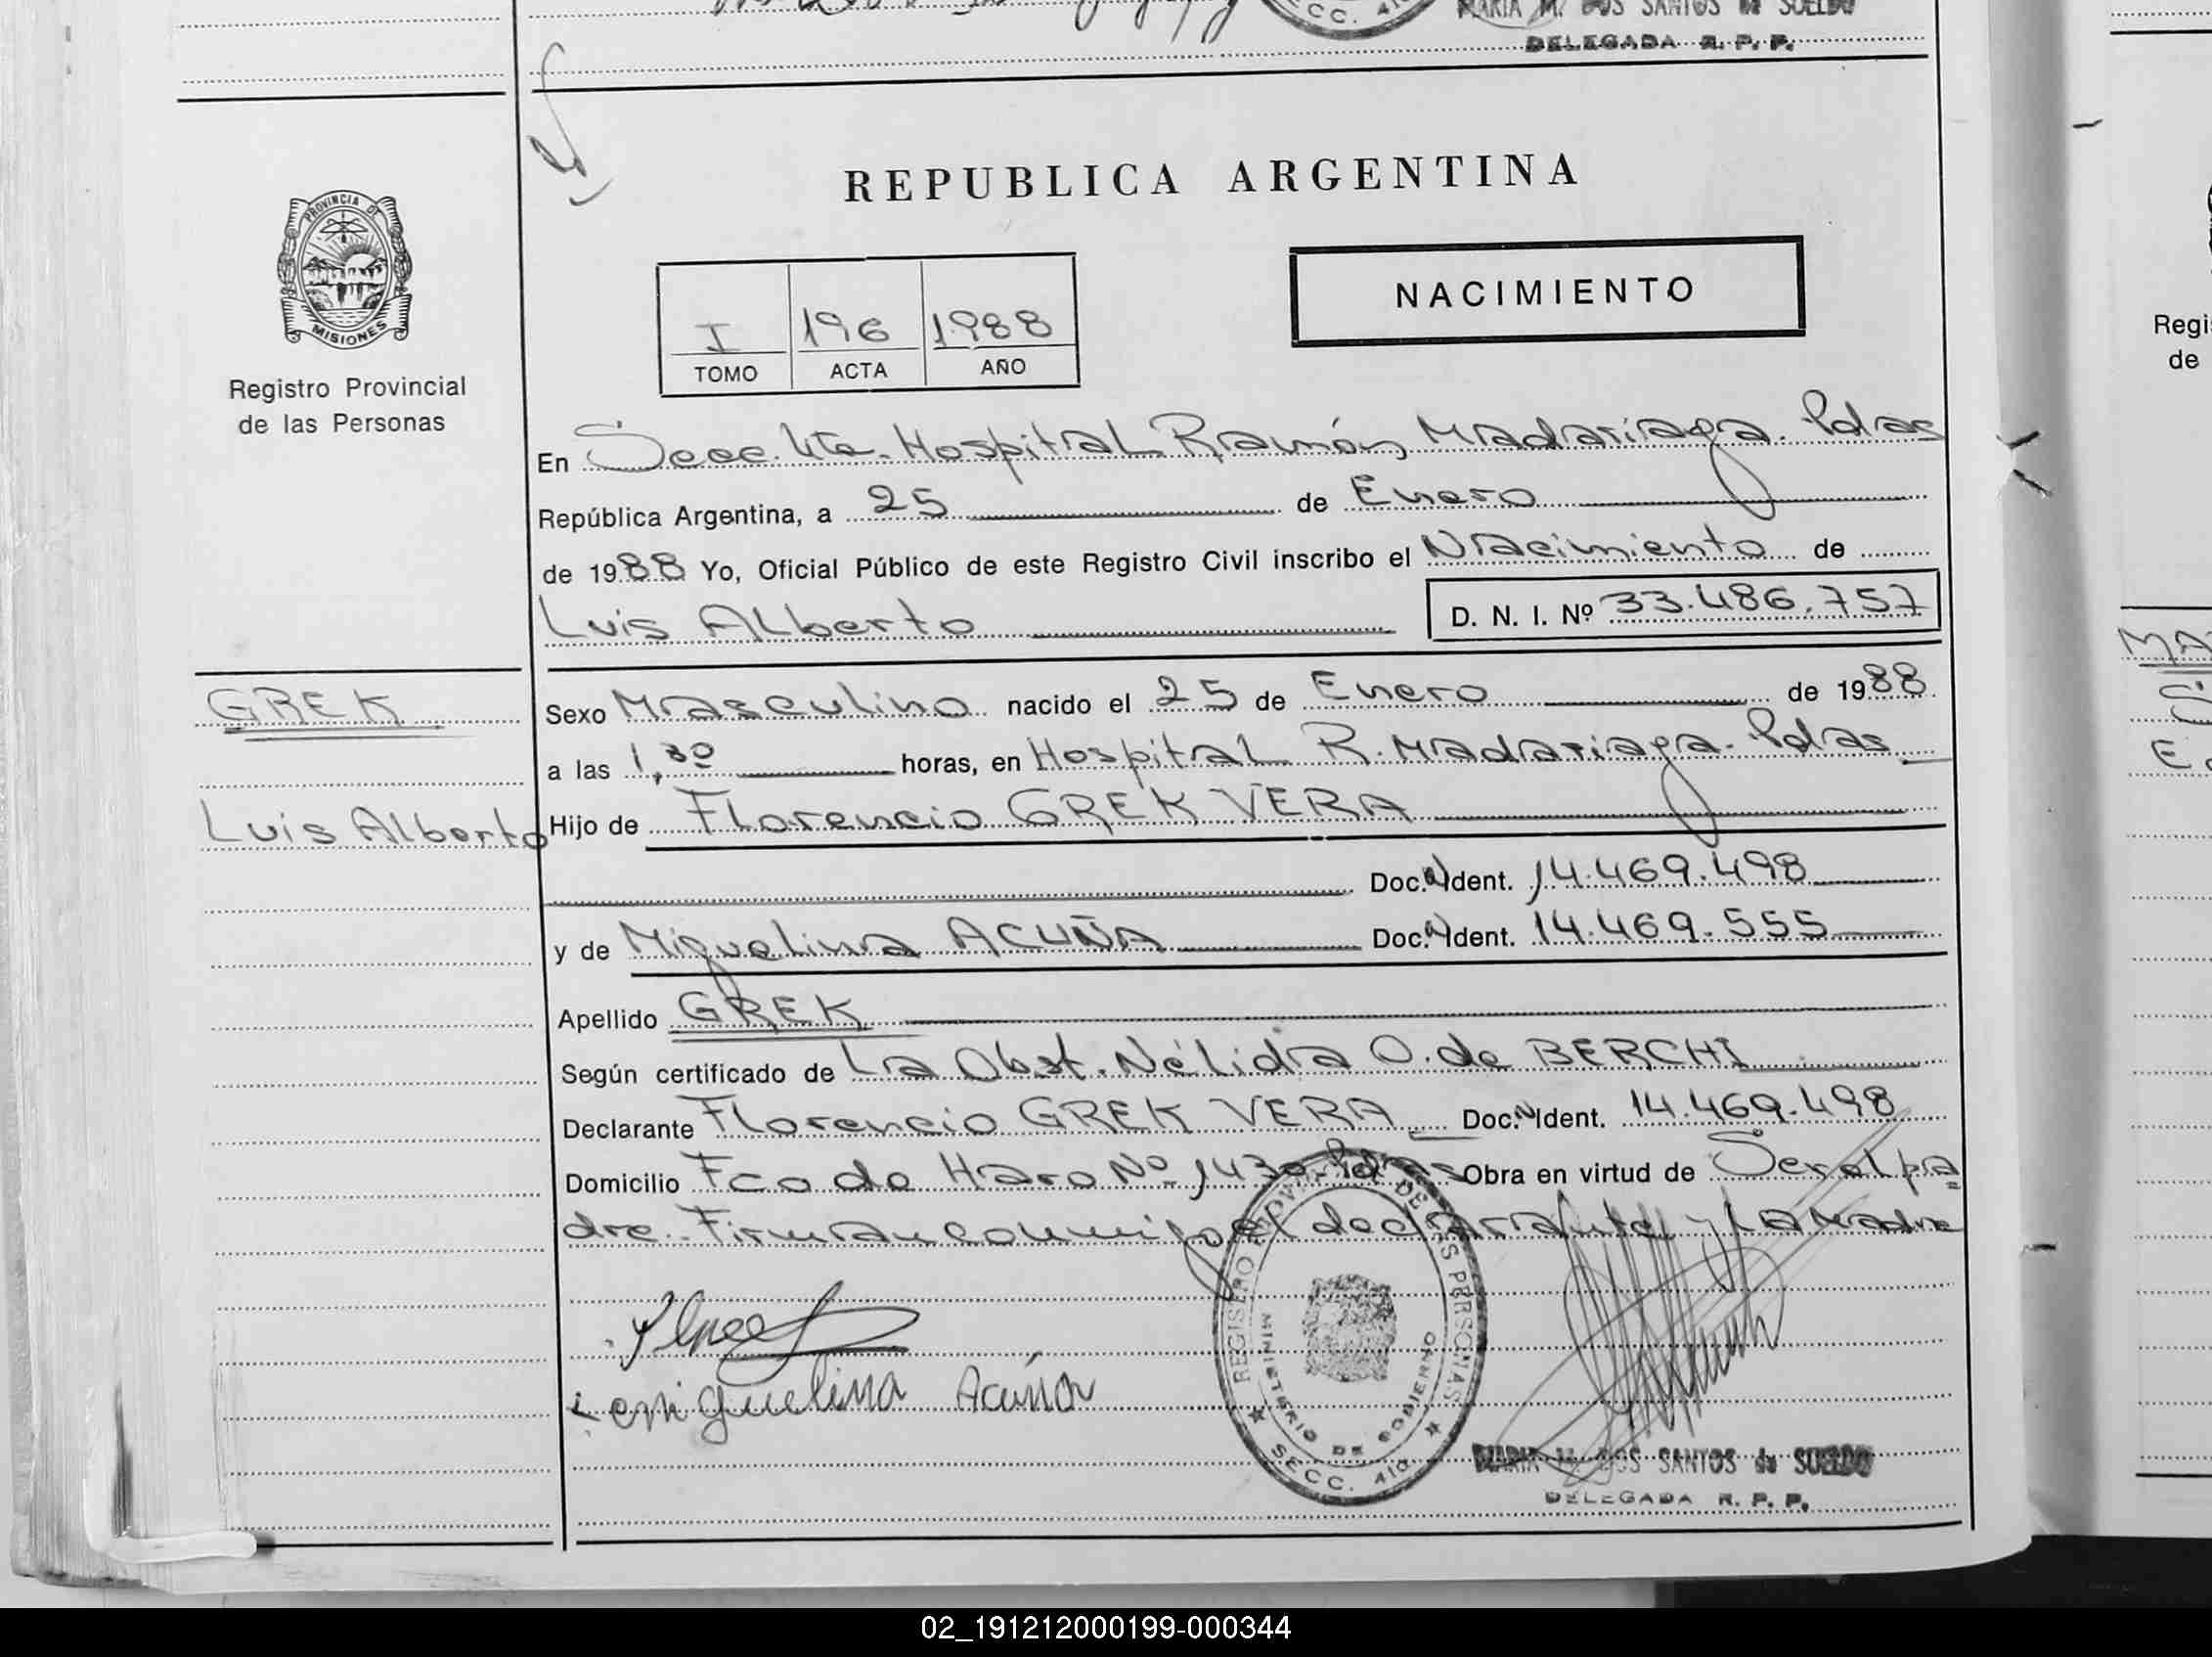 MARIA M. DOS SANTOS de SUELDO
DELEGADA R. P. P.
PROVINCIA DE
MISIONES
Registro Provincial
de las Personas
REPUBLICA ARGENTINA
NACIMIENTO
I 196 1988
TOMO ACTA AÑO
En Secc. Hospital Ramón Madariaga. Pdas
República Argentina, a 25 de Enero
de 1988 Yo, Oficial Público de este Registro Civil inscribo el Nacimiento de
Luis Alberto D. N. I. Nº 33.486.757
GREK
Luis Alberto
Sexo Masculino nacido el 25 de Enero de 1988
a las 1,30 horas, en Hospital R. Madariaga. Pdas
Hijo de Florencio GREK VERA
Doc. N Ident. 14.469.498
y de Miguelina ACUÑA Doc. N Ident. 14.469.555
Apellido GREK
Según certificado de La Obst. Nélida O. de BERCHI
Declarante Florencio GREK VERA Doc. N Ident. 14.469.498
Domicilio Fco de Haro Nº 1430-Pdas Obra en virtud de Ser el pa
dre. Firman conmigo el declarante y La Madre
Miguelina Acuña
REGISTRO PROVINCIAL DE LAS PERSONAS
MINISTERIO DE GOBIERNO
SECC. 410
MARIA M. DOS SANTOS de SUELDO
DELEGADA R. P. P.
Regi
de
MA
02_191212000199-000344